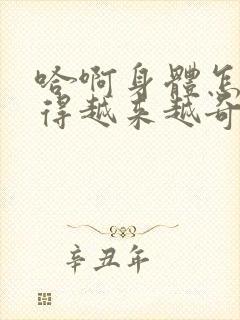 哈啊身體怎
得越来越奇
辛丑年